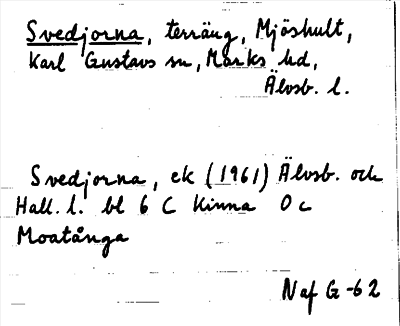 Svedjorna, terräng, Mjöshult,
Karl Gustavs sn, Marks hd,
Älvsb. l.
Svedjorna, ek (1961) Älvsb. och
Hall. l. bl 6 C Kinna 0 c
Moatånga
Naf G-62